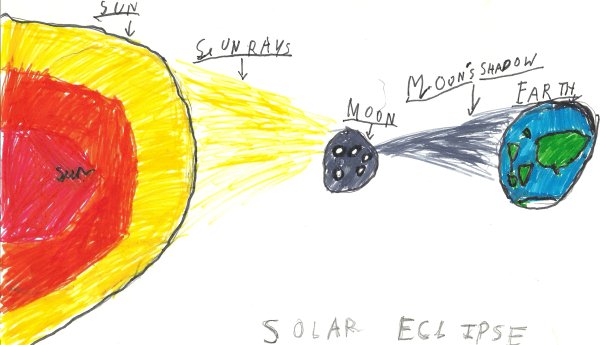 SUN
SUNRAYS
MOON
MOON'S SHADOW
EARTH
Sun
SOLAR ECLIPSE